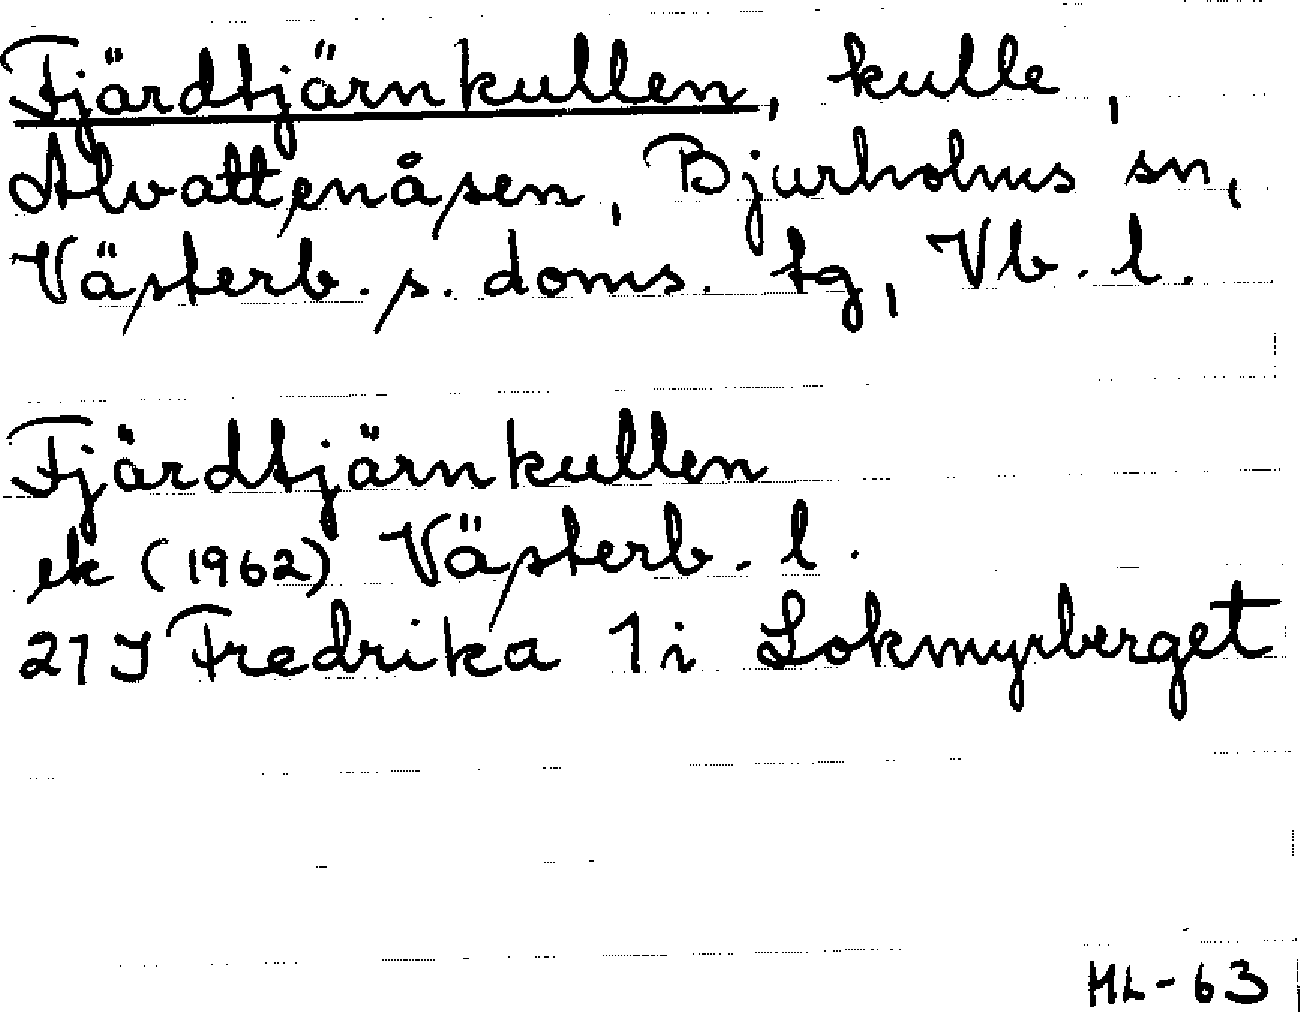 Fjärdtjärnkullen, kulle,
Alvattenåsen, Bjurholms sn,
Västerb. s. doms. tg, Vb. l.
Fjärdtjärnkullen
ek (1962) Västerb. l.
21J Fredrika 1i Lokmyrberget
ML-63